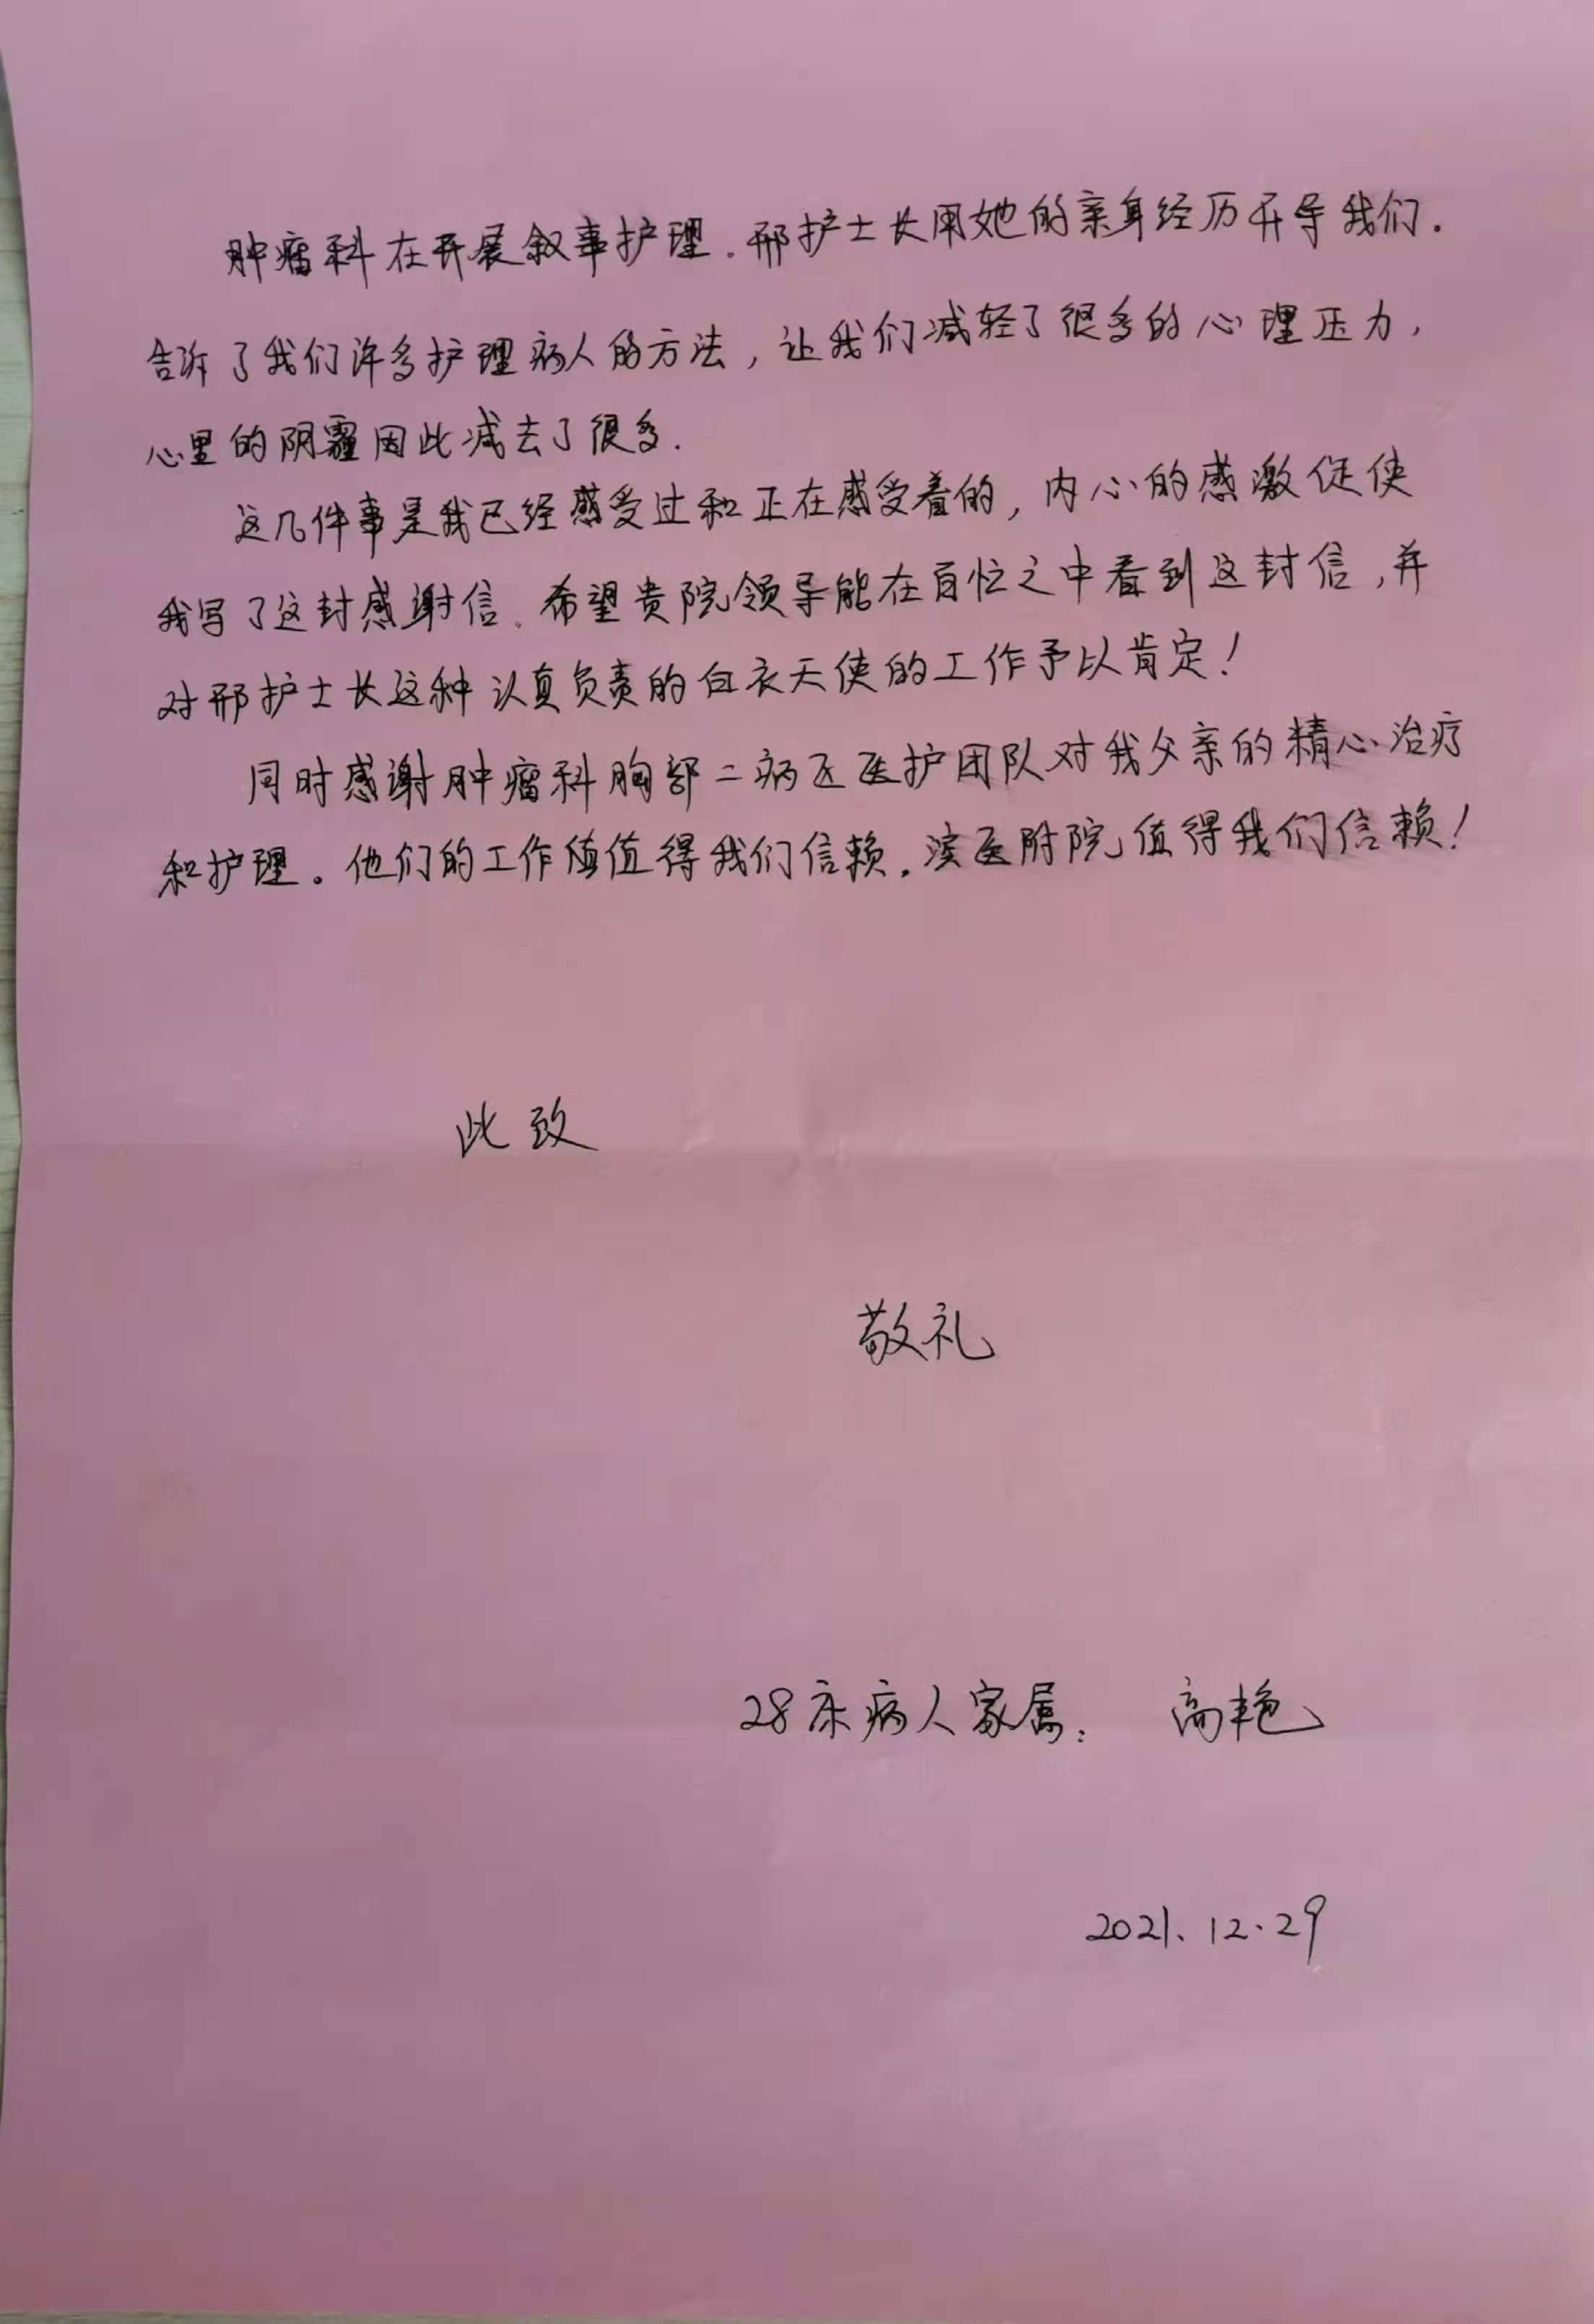 肿瘤科在开展叙事护理。邢护士长用她的亲身经历开导我们.
告诉了我们许多护理病人的方法，让我们减轻了很多的心理压力，
心里的阴霾因此减去了很多.
这几件事是我已经感受过和正在感受着的，内心的感激促使
我写了这封感谢信。希望贵院领导能在百忙之中看到这封信，并
对邢护士长这种认真负责的白衣天使的工作予以肯定！
同时感谢肿瘤科胸部二病区医护团队对我父亲的精心治疗
和护理。他们的工作值值得我们信赖。滨医附院值得我们信赖！
此致
敬礼
28床病人家属：高艳
2021.12.29